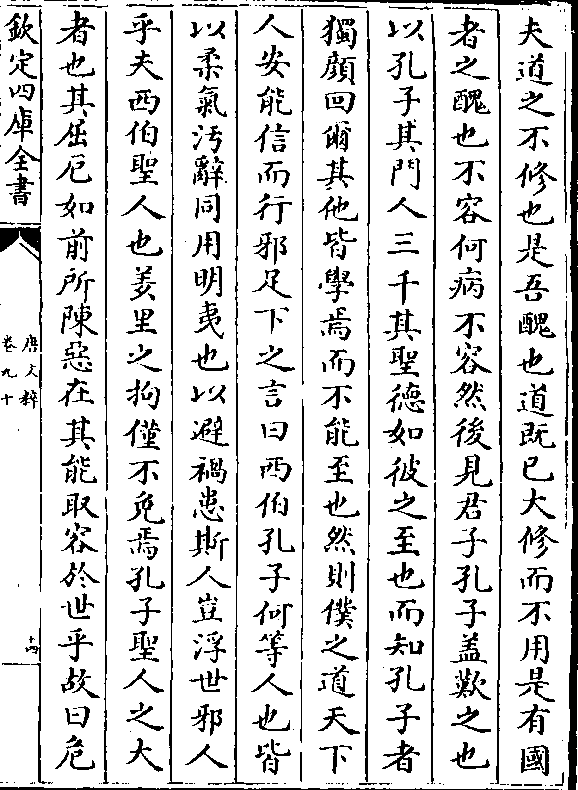 夫道之不修也是吾醜也道既已大修而不用是有國
者之醜也不容何病不容然後見君子孔子盖歎之也
以孔子其門人三千其聖德如彼之至也而知孔子者
獨顔回爾其他皆學焉而不能至也然則僕之道天下
人安能信而行邪足下之言曰西伯孔子何等人也皆
以柔氣汚辭同用明夷也以避禍患斯人豈浮世邪人
乎夫西伯聖人也羑里之拘僅不免焉孔子聖人之大
者也其屈厄如前所陳惡在其能取容於世乎故曰危
欽定四庫全書
唐文粹
卷九十
十四